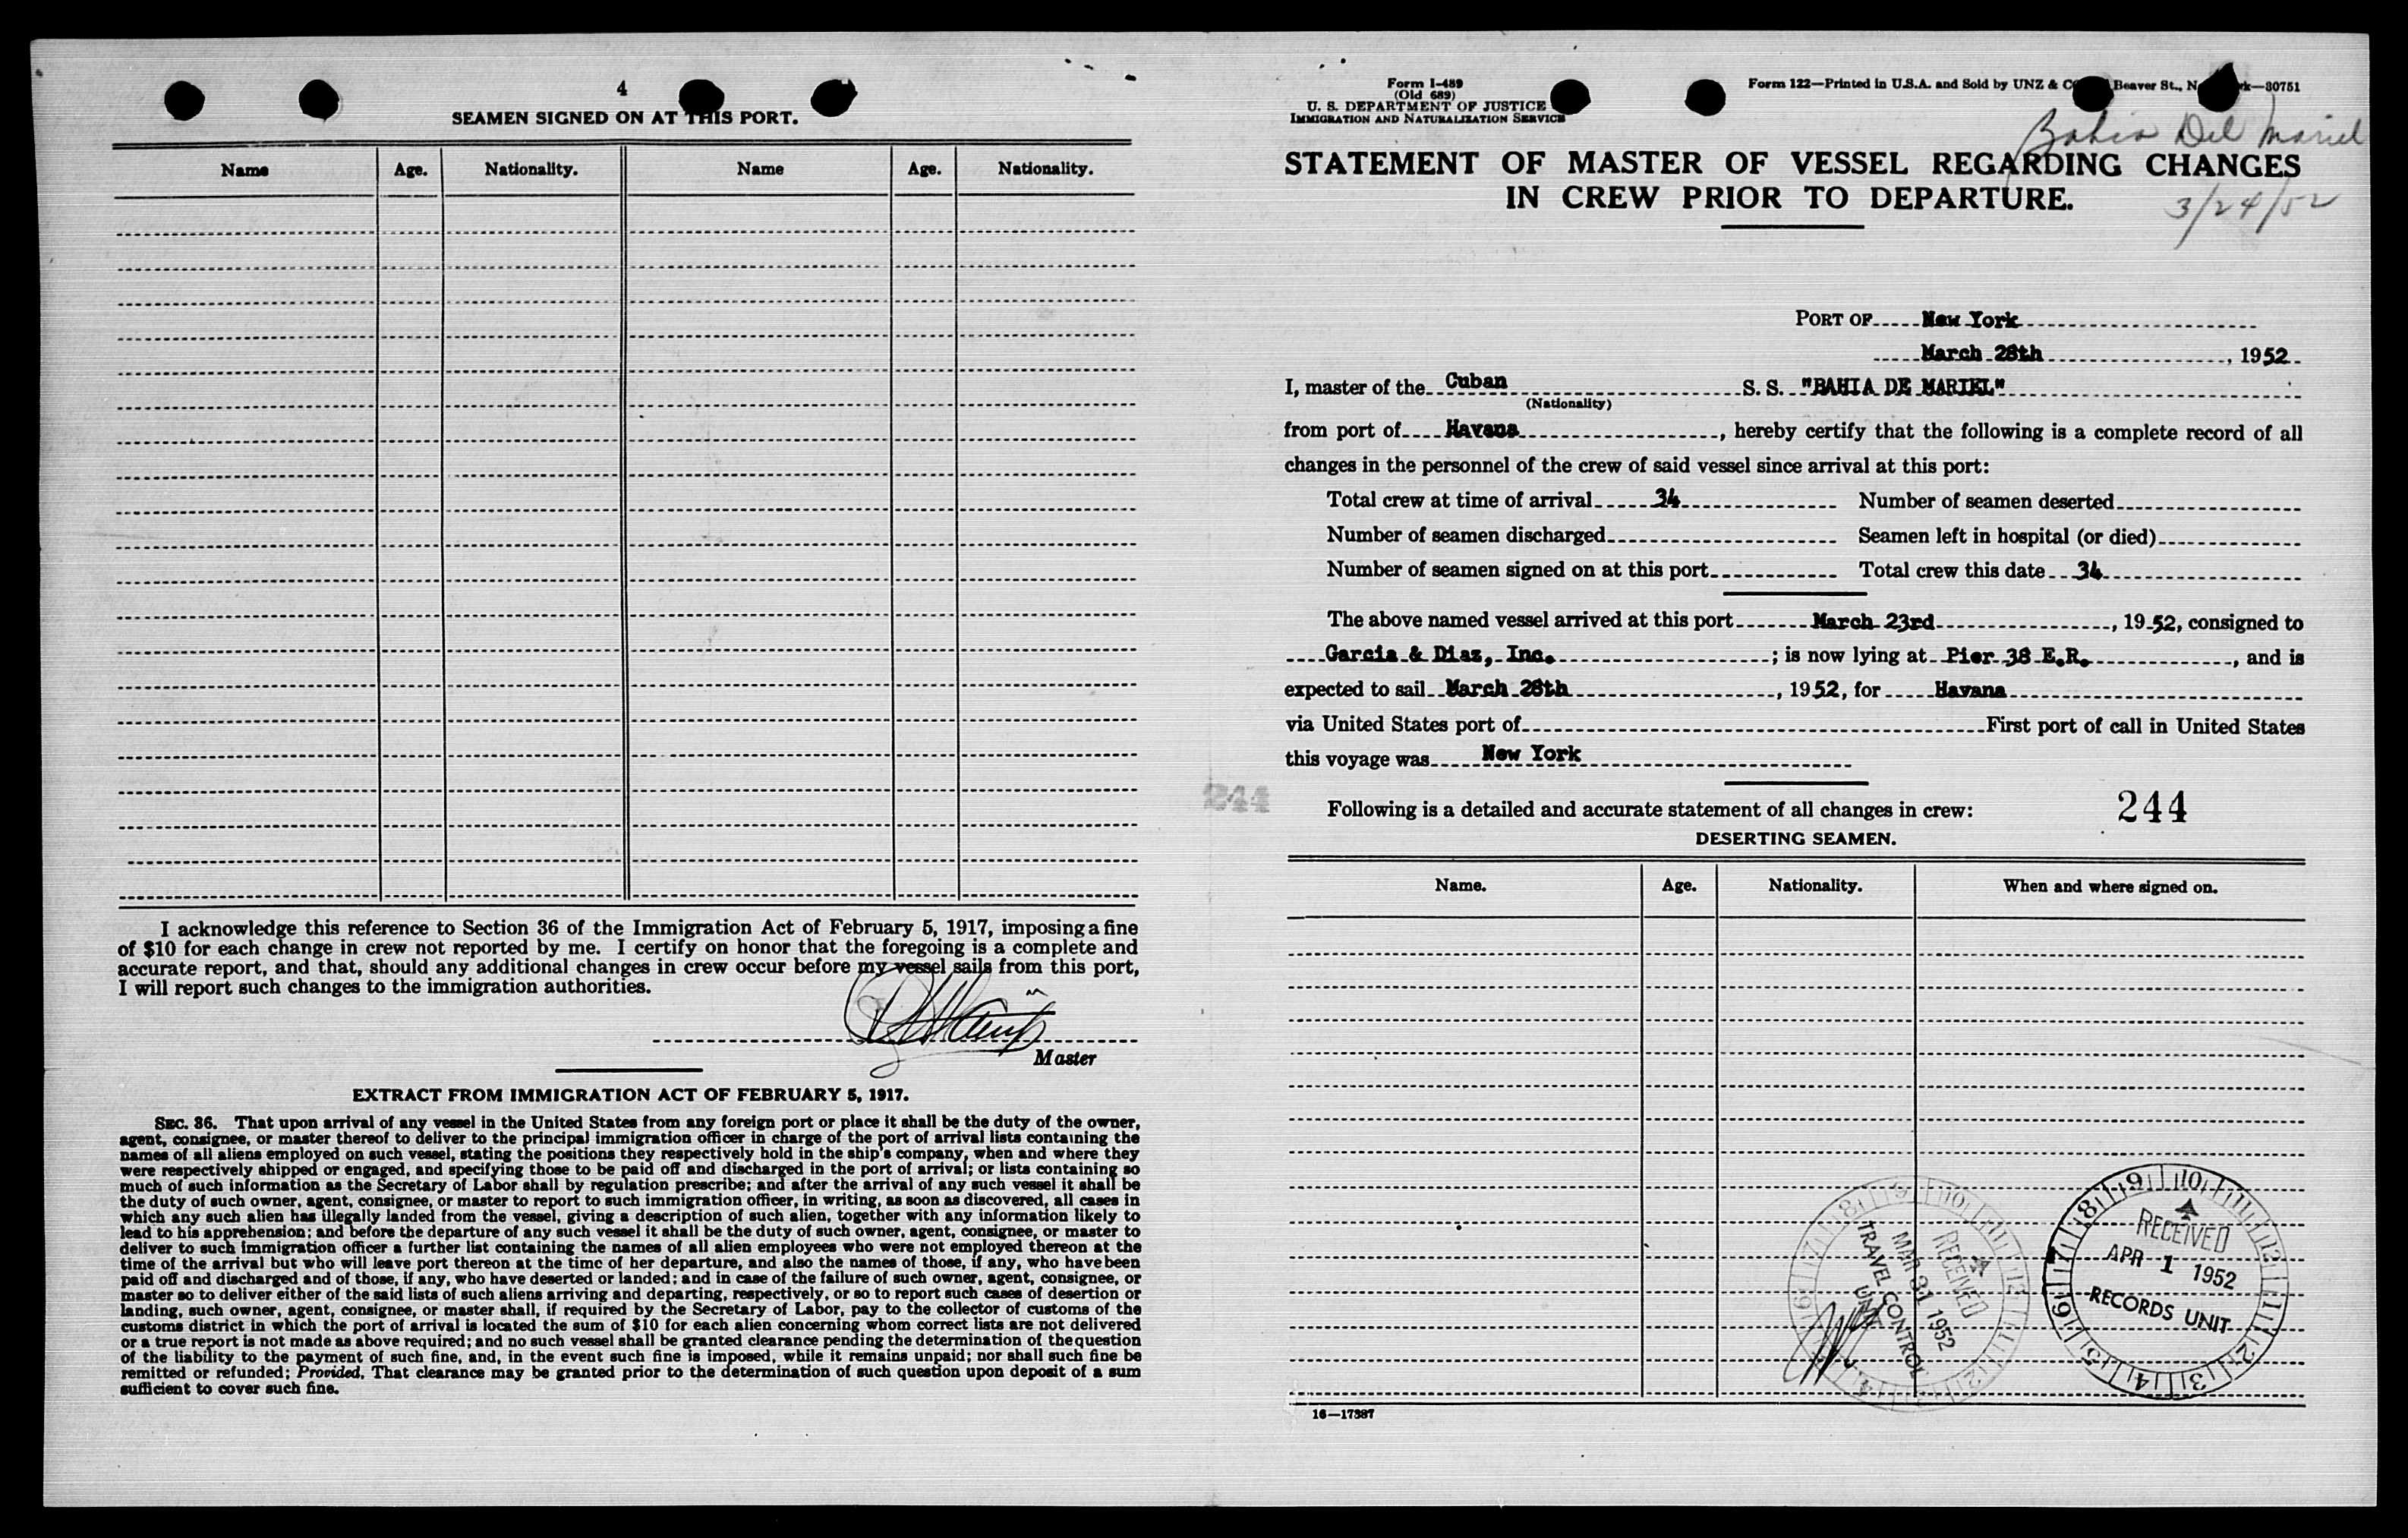 4
SEAMEN SIGNED ON AT THIS PORT.
Name Age. Nationality. Name Age. Nationality.
I acknowledge this reference to Section 36 of the Immigration Act of February 5, 1917, imposing a fine
of $10 for each change in crew not reported by me. I certify on honor that the foregoing is a complete and
accurate report, and that, should any additional changes in crew occur before my vessel sails from this port,
I will report such changes to the immigration authorities.
Master
EXTRACT FROM IMMIGRATION ACT OF FEBRUARY 5, 1917.
SEC. 36. That upon arrival of any vessel in the United States from any foreign port or place it shall be the duty of the owner,
agent, consignee, or master thereof to deliver to the principal immigration officer in charge of the port of arrival lists containing the
names of all aliens employed on such vessel, stating the positions they respectively hold in the ship's company, when and where they
were respectively shipped or engaged, and specifying those to be paid off and discharged in the port of arrival; or lists containing so
much of such information as the Secretary of Labor shall by regulation prescribe; and after the arrival of any such vessel it shall be
the duty of such owner, agent, consignee, or master to report to such immigration officer, in writing, as soon as discovered, all cases in
which any such alien has illegally landed from the vessel, giving a description of such alien, together with any information likely to
lead to his apprehension; and before the departure of any such vessel it shall be the duty of such owner, agent, consignee, or master to
deliver to such immigration officer a further list containing the names of all alien employees who were not employed thereon at the
time of the arrival but who will leave port thereon at the time of her departure, and also the names of those, if any, who have been
paid off and discharged and of those, if any, who have deserted or landed; and in case of the failure of such owner, agent, consignee, or
master so to deliver either of the said lists of such aliens arriving and departing, respectively, or so to report such cases of desertion or
landing, such owner, agent, consignee, or master shall, if required by the Secretary of Labor, pay to the collector of customs of the
customs district in which the port of arrival is located the sum of $10 for each alien concerning whom correct lists are not delivered
or a true report is not made as above required; and no such vessel shall be granted clearance pending the determination of the question
of the liability to the payment of such fine, and, in the event such fine is imposed, while it remains unpaid; nor shall such fine be
remitted or refunded; Provided, That clearance may be granted prior to the determination of such question upon deposit of a sum
sufficient to cover such fine.
244
Form I-489
(Old 689)
U. S. DEPARTMENT OF JUSTICE
IMMIGRATION AND NATURALIZATION SERVICE
Form 122—Printed in U.S.A. and Sold by UNZ & Beaver St., —30751
Bahia Del Mariel
STATEMENT OF MASTER OF VESSEL REGARDING CHANGES
IN CREW PRIOR TO DEPARTURE.
3/24/52
PORT OF New York
March 28th, 1952
I, master of the Cuban S. S. "BAHIA DE MARIEL"
(Nationality)
from port of Havana, hereby certify that the following is a complete record of all
changes in the personnel of the crew of said vessel since arrival at this port:
Total crew at time of arrival 34 Number of seamen deserted
Number of seamen discharged Seamen left in hospital (or died)
Number of seamen signed on at this port Total crew this date 34
The above named vessel arrived at this port March 23rd, 1952, consigned to
Garcia & Diaz, Inc.; is now lying at Pier 38 E.R., and is
expected to sail March 28th, 1952, for Havana
via United States port of First port of call in United States
this voyage was New York
Following is a detailed and accurate statement of all changes in crew: 244
DESERTING SEAMEN.
Name. Age. Nationality. When and where signed on.
RECEIVED
MAR 31 1952
TRAVEL CONTROL
UNIT
RECEIVED
APR 1 1952
RECORDS UNIT
16—17387